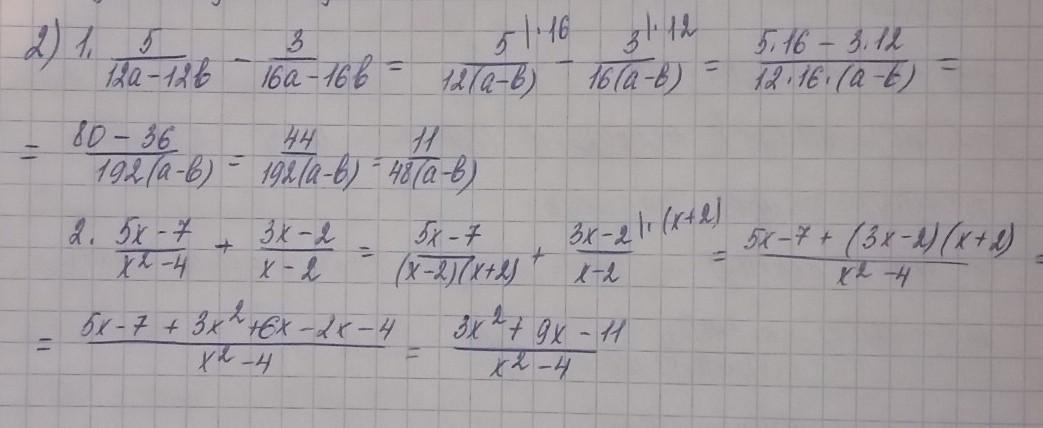 2) 1. 5/(12a-12b) - 3/(16a-16b) = 5|·16/(12(a-b)) - 3|·12/(16(a-b)) = (5·16-3·12)/(12·16·(a-b)) =
= (80-36)/(192(a-b)) = 44/(192(a-b)) = 11/(48(a-b))
2. (5x-7)/(x²-4) + (3x-2)/(x-2) = (5x-7)/((x-2)(x+2)) + (3x-2)|·(x+2)/(x-2) = (5x-7+(3x-2)(x+2))/(x²-4) =
= (5x-7+3x²+6x-2x-4)/(x²-4) = (3x²+9x-11)/(x²-4)